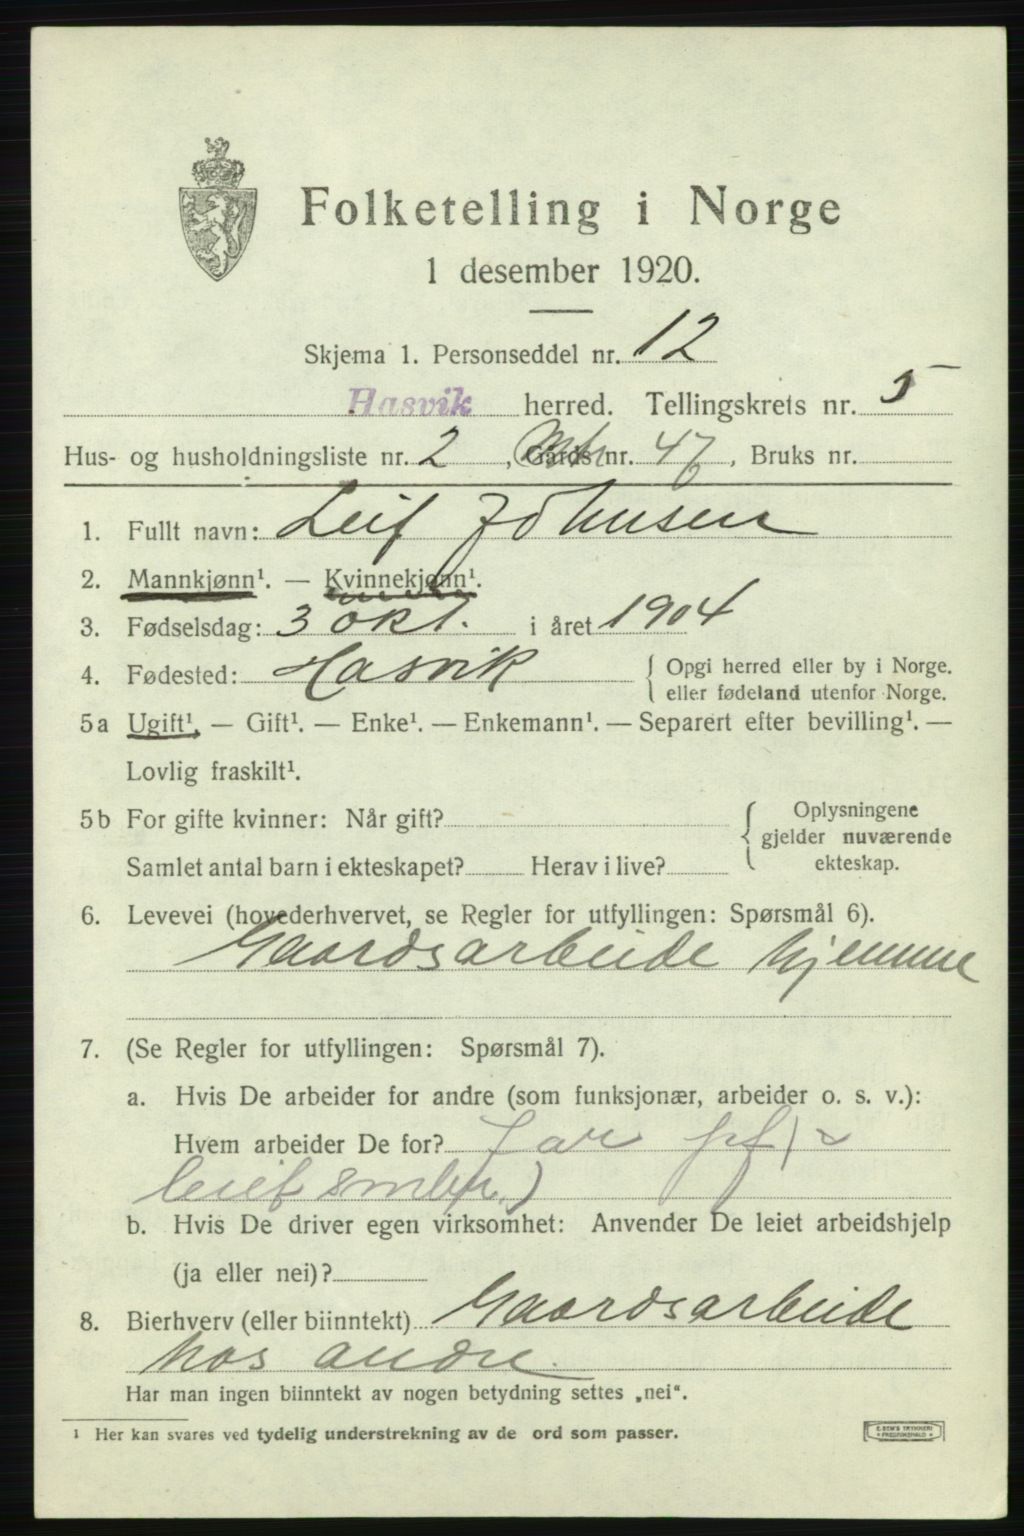 Folketelling i Norge
1 desember 1920.
Skjema 1. Personseddel nr. 12
Hasvik herred. Tellingskrets nr. 5
Hus- og husholdningsliste nr. 2, Gårds nr. 47, Bruks nr.
1. Fullt navn: Leif Johnsen
2. Mannkjønn¹. — Kvinnekjønn¹.
3. Fødselsdag: 3 okt. i året 1904
4. Fødested: Hasvik { Opgi herred eller by i Norge.
eller fødeland utenfor Norge.
5a Ugift¹. — Gift¹. — Enke¹. — Enkemann¹. — Separert efter bevilling¹. —
Lovlig fraskilt¹.
5b For gifte kvinner: Når gift? { Oplysningene
gjelder nuværende
Samlet antal barn i ekteskapet? Herav i live? ekteskap.
6. Levevei (hovederhvervet, se Regler for utfyllingen: Spørsmål 6).
Gaardsarbeide hjemme
7. (Se Regler for utfyllingen: Spørsmål 7).
a. Hvis De arbeider for andre (som funksjonær, arbeider o. s. v.):
Hvem arbeider De for? Far
b. Hvis De driver egen virksomhet: Anvender De leiet arbeidshjelp
(ja eller nei)?
8. Bierhverv (eller biinntekt) Gaardsarbeide
hos andre.
Har man ingen biinntekt av nogen betydning settes „nei“.
¹ Her kan svares ved tydelig understrekning av de ord som passer.